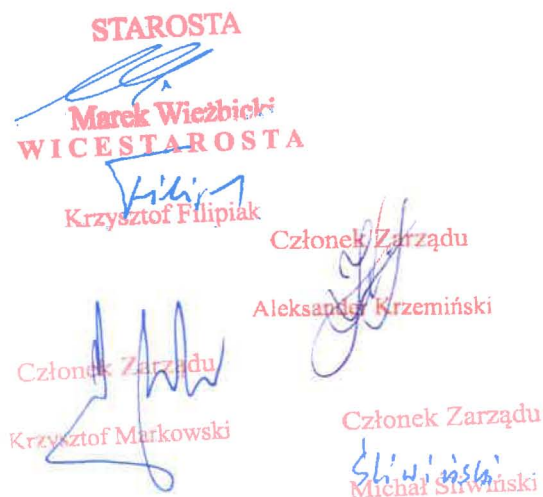 STAROSTA
Marek Wieżbicki
WICESTAROSTA
Filip
Krzysztof Filipiak
Członek Zarządu
Aleksander Krzemiński
Członek Zarządu
Krzysztof Markowski
Członek Zarządu
Śliwiński
Michał Śliwiński